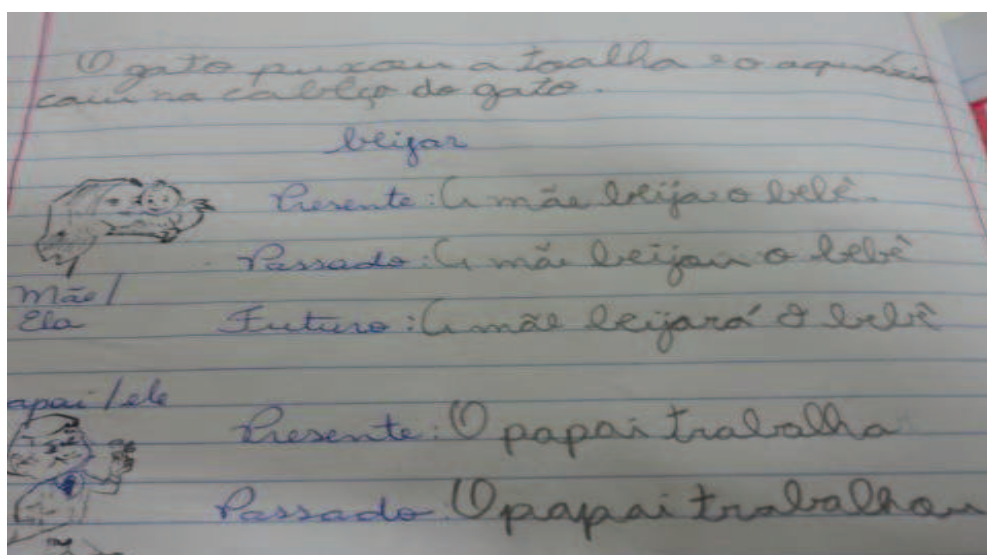 O gato puxou a toalha e o aquário
caiu na cabeça do gato.
beijar
Presente: A mãe beija o bebê.
Passado: A mãe beijou o bebê
Mãe/
Ela
Futuro: A mãe beijará o bebê
apai/ele
Presente: O papai trabalha
Passado: O papai trabalhou